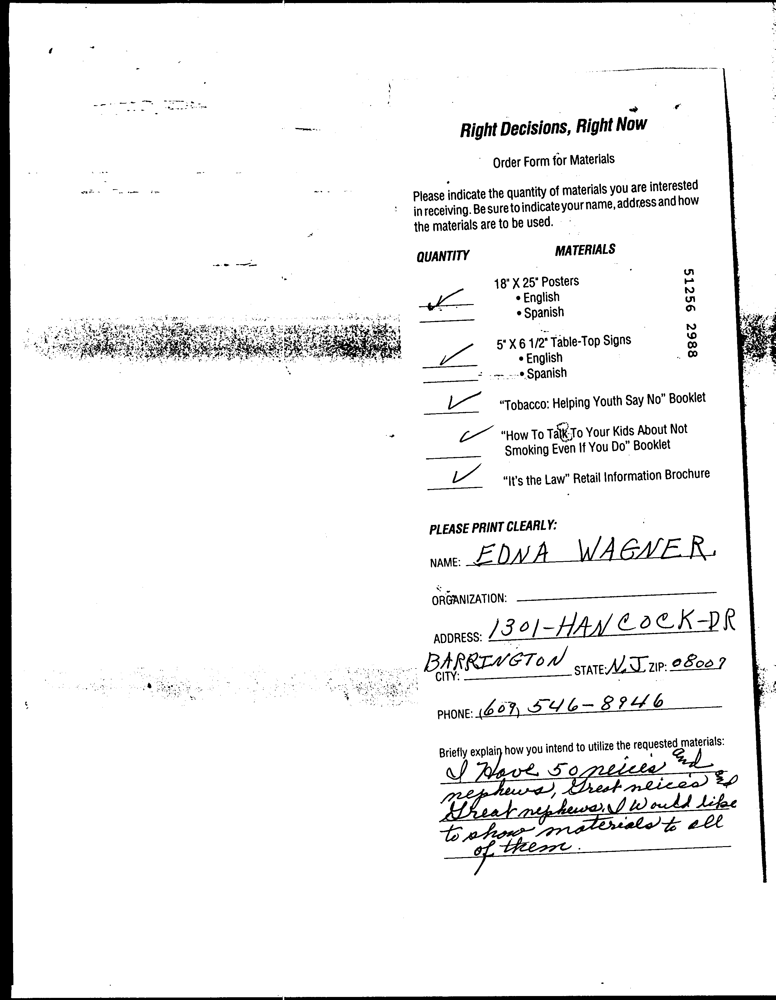 Right Decisions, Right Now
Order Form for Materials
Please indicate the quantity of materials you are interested
in receiving. Be sure to indicate your name, address and how
the materials are to be used.
QUANTITY MATERIALS
✓ 18" X 25" Posters
• English
• Spanish
✓ 5" X 6 1/2" Table-Top Signs
• English
• Spanish
✓ "Tobacco: Helping Youth Say No" Booklet
✓ "How To Talk To Your Kids About Not
Smoking Even If You Do" Booklet
✓ "It's the Law" Retail Information Brochure
51256 2988
PLEASE PRINT CLEARLY:
NAME: EDNA WAGNER
ORGANIZATION:
ADDRESS: 1301-HANCOCK-DR
CITY: BARRINGTON STATE: N.J ZIP: 08007
PHONE: (609) 546-8946
Briefly explain how you intend to utilize the requested materials:
I Have 50 neices and
nephews, Great neices &
Great nephews. I would like
to show materials to all
of them.